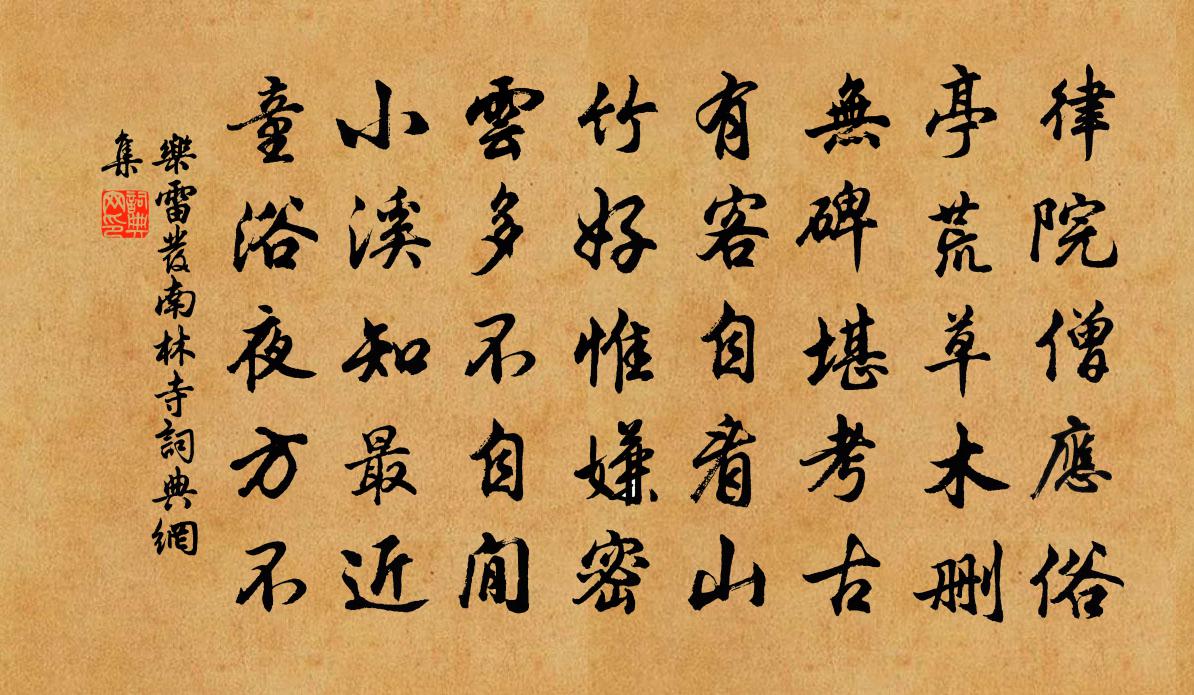 律院僧應俗
亭荒草木刪
無碑堪考古
有客自看山
竹好惟嫌密
雲多不自閒
小溪知最近
童浴夜方不
樂雷發南林寺詞典網
集
詞典
网印